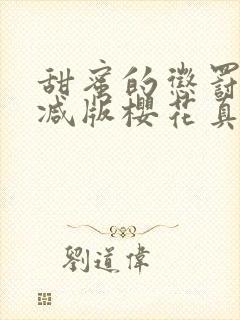 甜蜜的懲罰
減版櫻花真
劉道偉